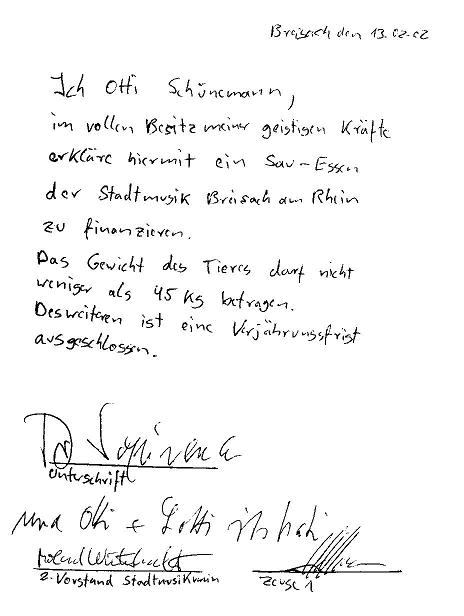 Breisach den 13.02.02
Ich Otti Schünemann,
im vollen Besitz meiner geistigen Kräfte
erkläre hiermit ein Sau-Essen
der Stadtmusik Breisach am Rhein
zu finanzieren.
Das Gewicht des Tieres darf nicht
weniger als 45 Kg betragen.
Desweiteren ist eine Verjährungsfrist
ausgeschlossen.
Unterschrift
und Otti + Lotti
2. Vorstand Stadtmusikverein
Zeuge 1